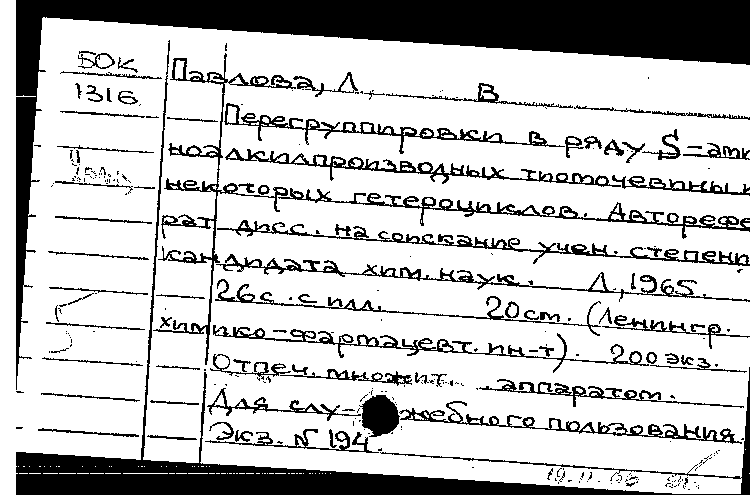 БОК
1316
Павлова, Л. В
Перегруппировки в ряду S-ами
ноалкилпроизводных тиомочевины и
некоторых гетероциклов. Авторефе
рат дисс. на соискание учен. степени
кандидата хим. наук. Л, 1965.
26с. с илл. 20см. (Ленингр.
химико-фармацевт. ин-т). 200 экз.
Отпеч. множит. аппаратом.
Для слу- жебного пользования.
Экз. N 194.